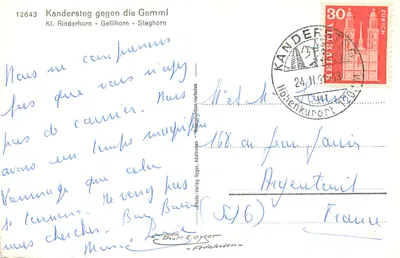 12643 Kandersteg gegen die Gemmi
Kl. Rinderhorn - Gellihorn - Steghorn
30
HELVETIA
ZÜRICH
KANDERSTEG
24.II.
Höhenkurort 1200 m
Nous ne comprenons
pas que vous n'ayez
pas de courrier. Nous
avons un temps magnifique
Dommage que cela
se termine. Ne venez pas
nous chercher. Bons Baisers
M et M
168 av Jean Jaurès
Argenteuil
(S/O)
France
Photo-Verlag Gyger, Adelboden
Adelboden